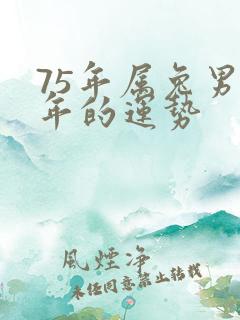 75年属兔男
年的运势
風煙净
未经同意禁止转载